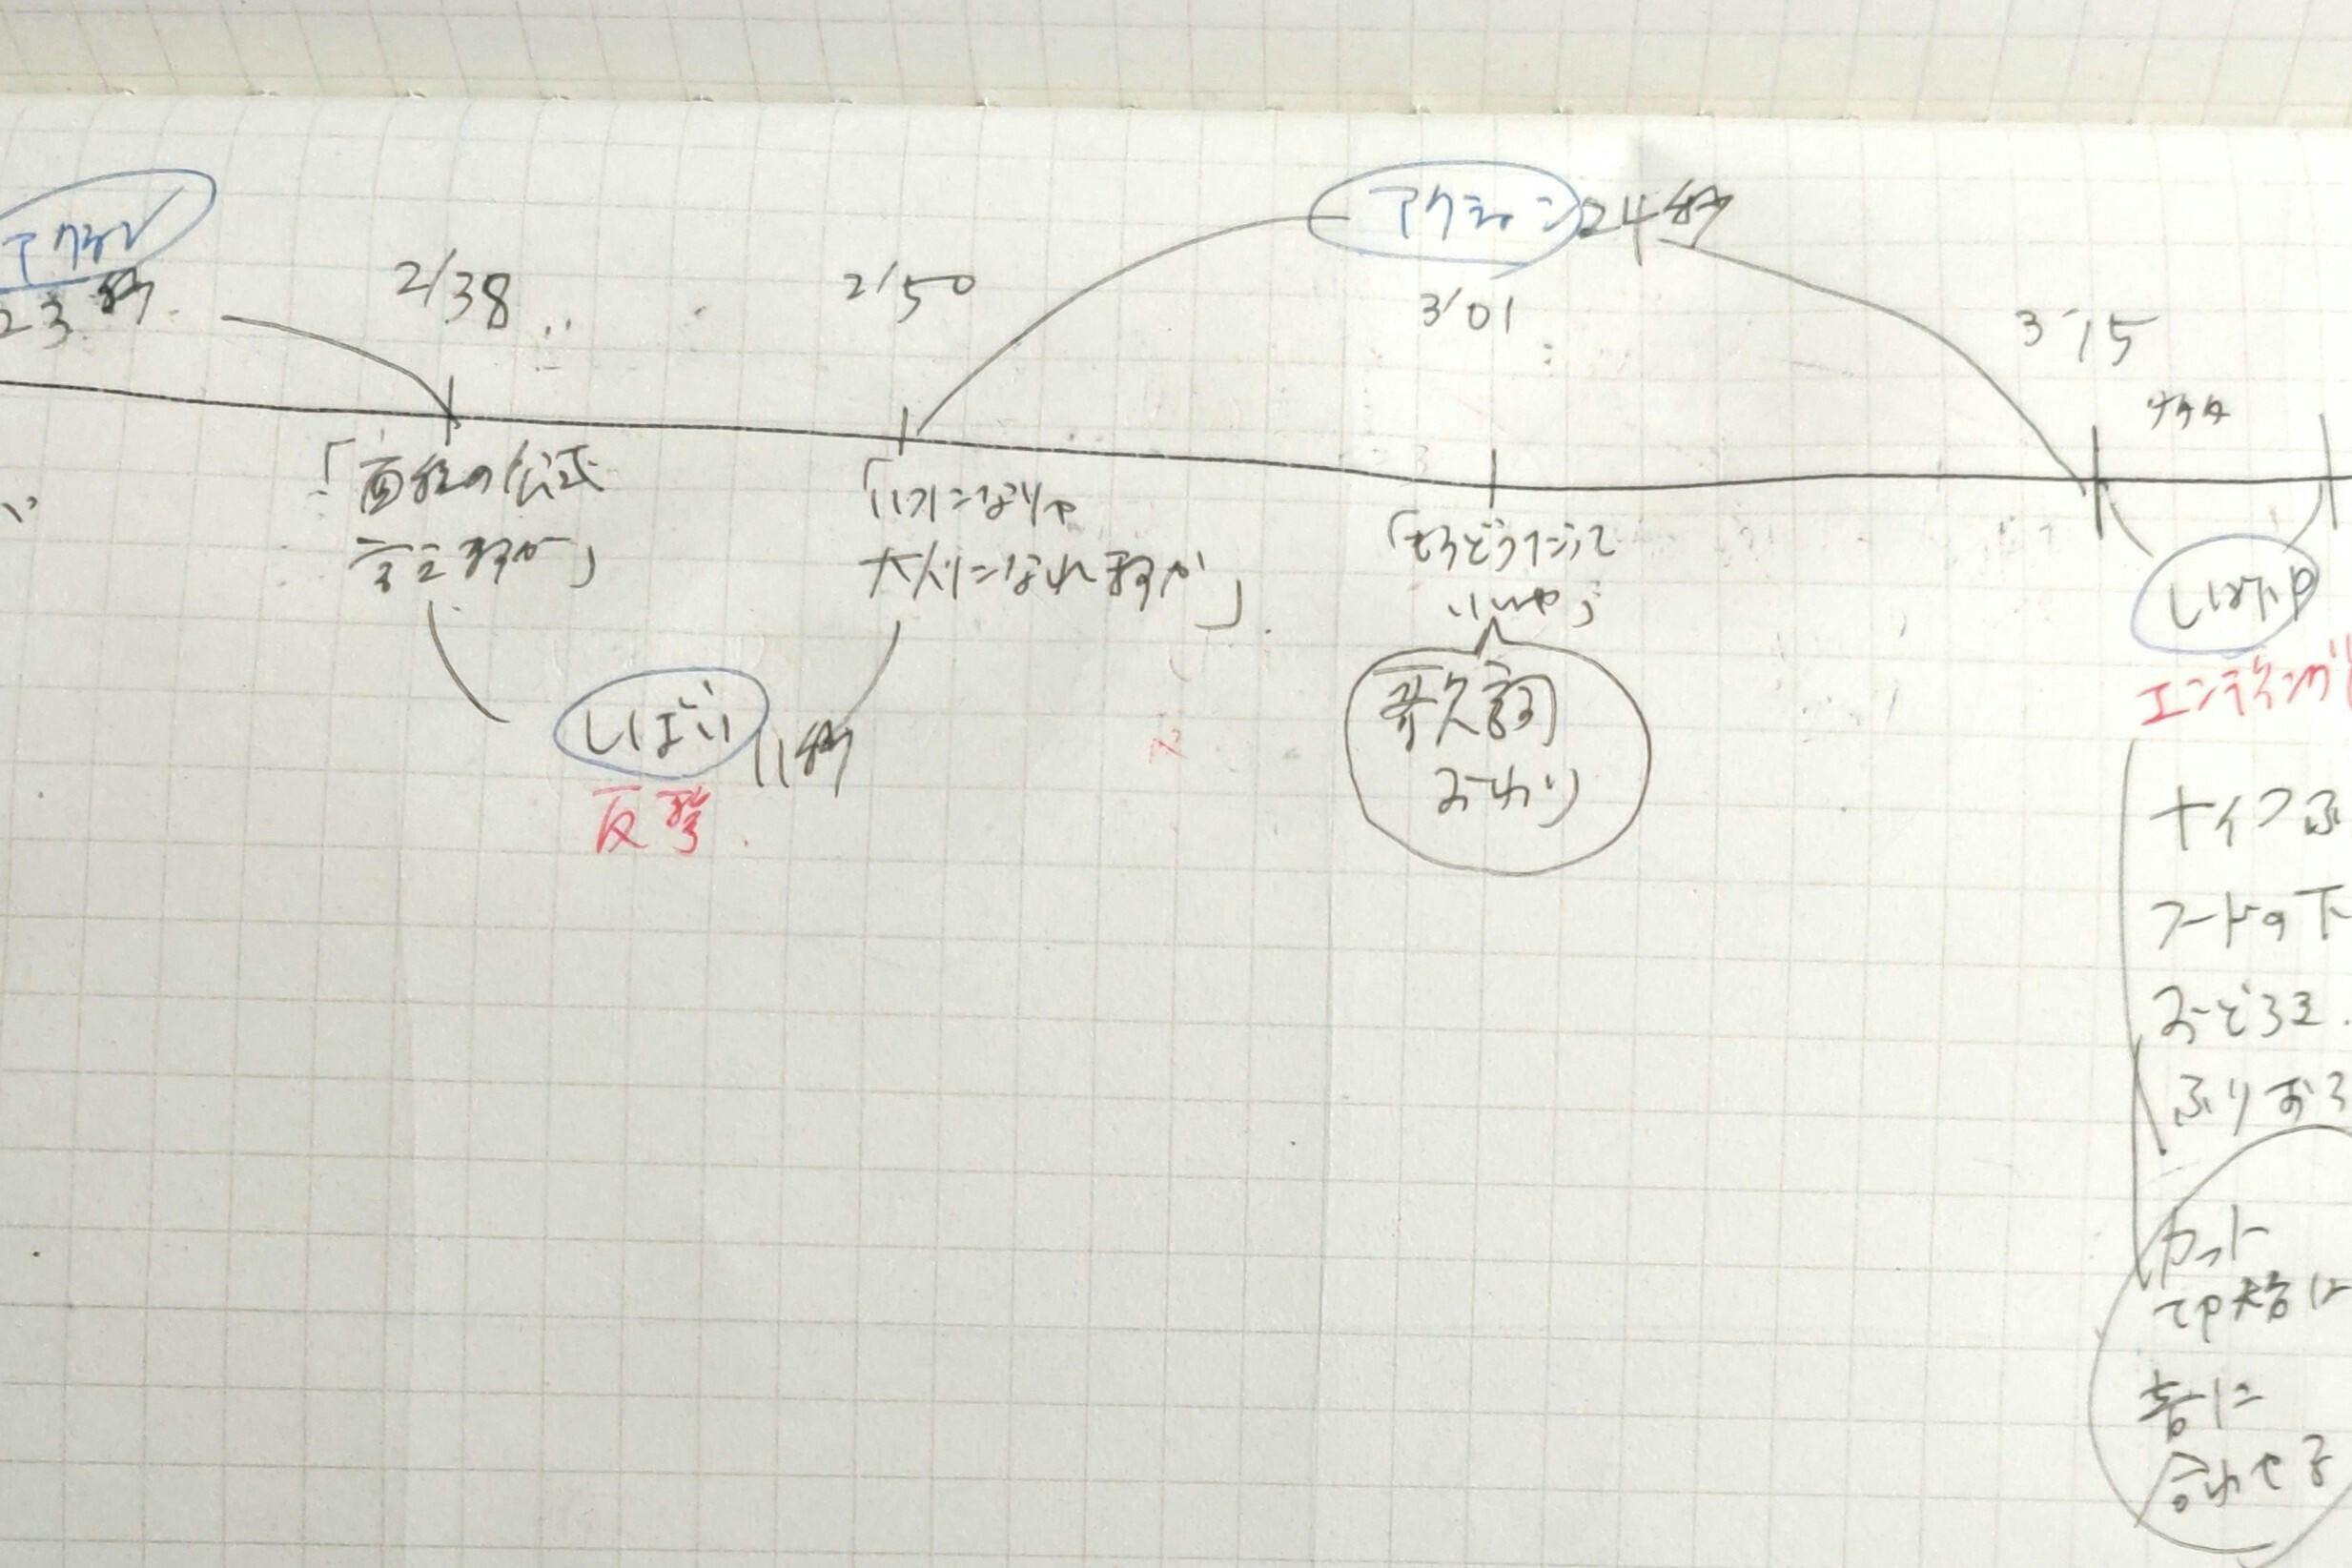 アクション
23秒
2/38
2/50
アクション 24秒
3'01
3'15
「面積の公式
言えますか」
「いつになりゃ
大人になれますか」
「もうどうだって
いいや」
しばい 11秒
反発
歌詞
おわり
しばい
エンディング
ナイフふ
フードの下
おどろき
ふりおろ
カット
音に
合わせる